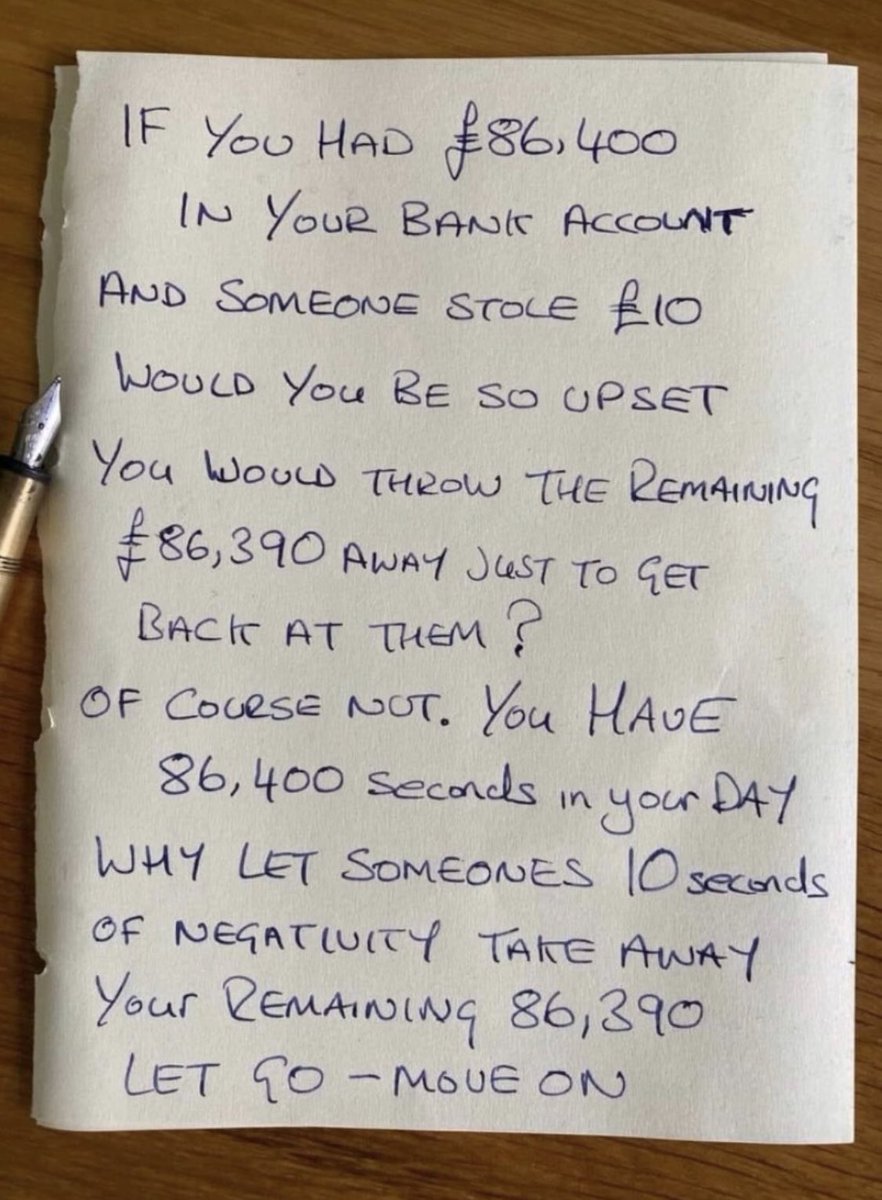 IF YOU HAD £86,400
IN YOUR BANK ACCOUNT
AND SOMEONE STOLE £10
WOULD YOU BE SO UPSET
YOU WOULD THROW THE REMAINING
£86,390 AWAY JUST TO GET
BACK AT THEM?
OF COURSE NOT. YOU HAVE
86,400 seconds in your DAY
WHY LET SOMEONES 10 seconds
OF NEGATIVITY TAKE AWAY
Your REMAINING 86,390
LET GO – MOVE ON